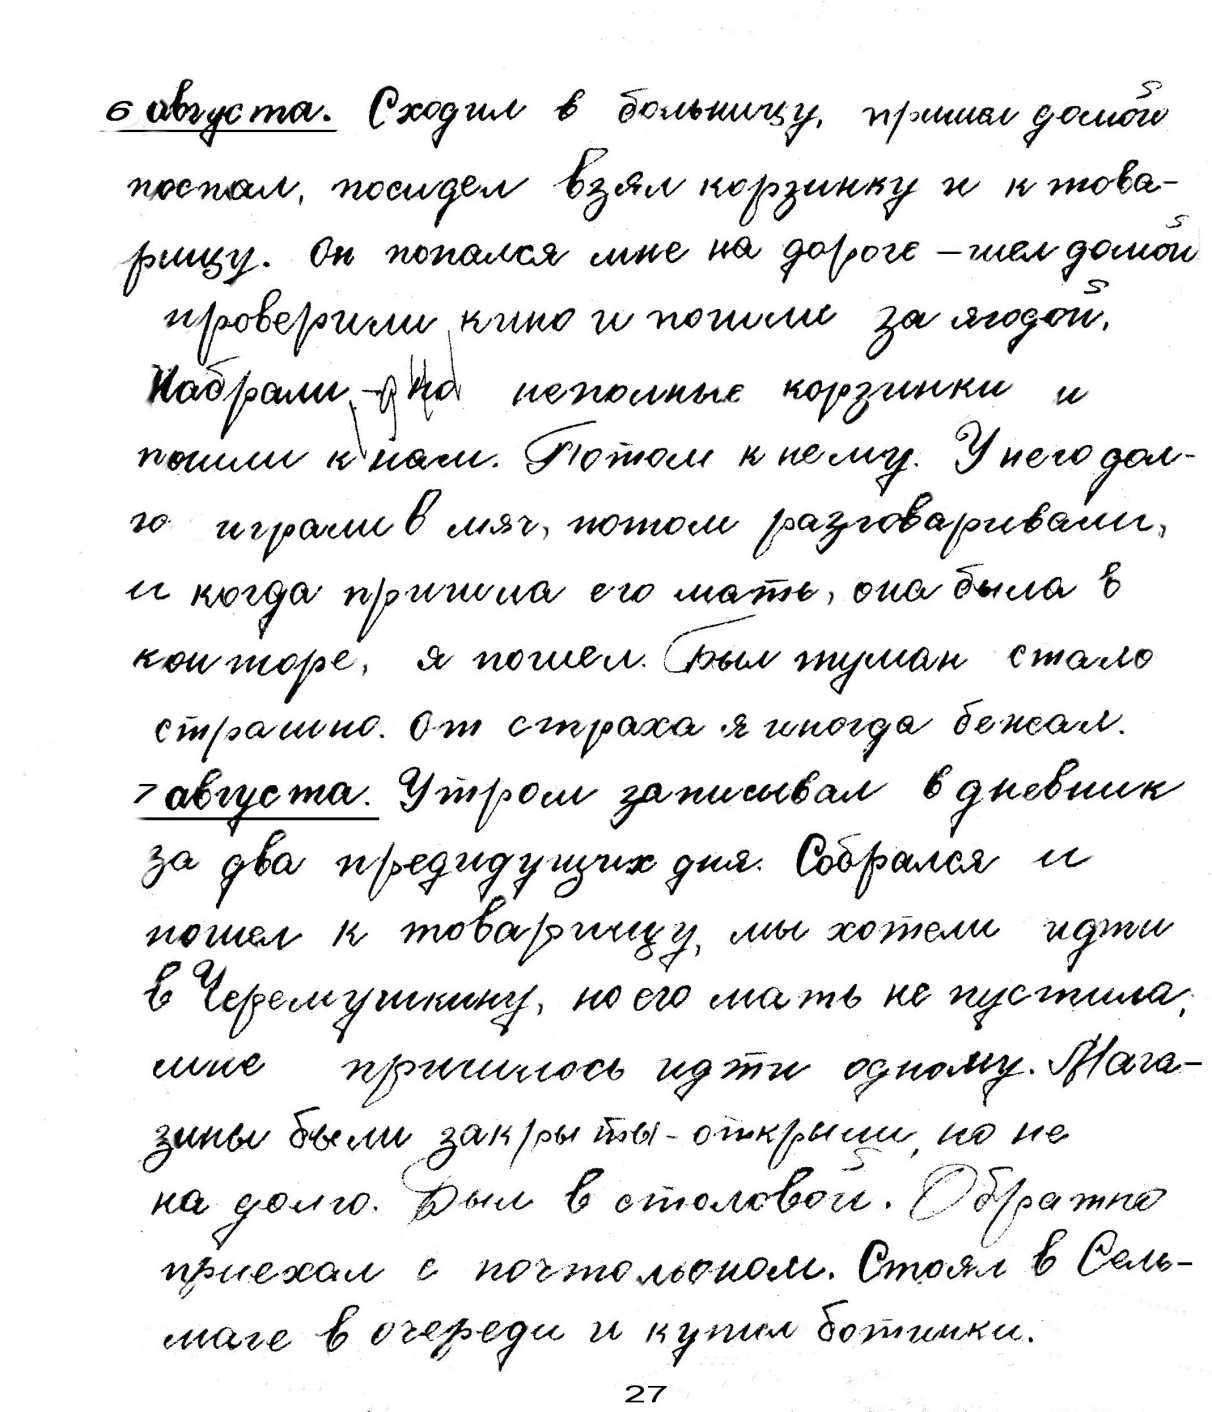 6 августа. Сходил в больницу, пришел домой
поспал, посидел взял корзинку и к това-
рищу. Он попался мне на дороге – шел домой
проверили кино и пошли за ягодой.
Набрали неполные корзинки и
пошли к нам. Потом к нему. У него дол-
го играли в мяч, потом разговаривали,
и когда пришла его мать, она была в
конторе, я пошел. Был туман стало
страшно. От страха я иногда бежал.
7 августа. Утром записывал в дневник
за два предидущих дня. Собрался и
пошел к товарищу, мы хотели идти
в Черемушкину, но его мать не пустила,
мне пришлось идти одному. Мага-
зины были закрыты - открыли, но не
на долго. Был в столовой. Обратно
приехал с почтольоном. Стоял в Сель-
маге в очереди и купил ботинки.
27